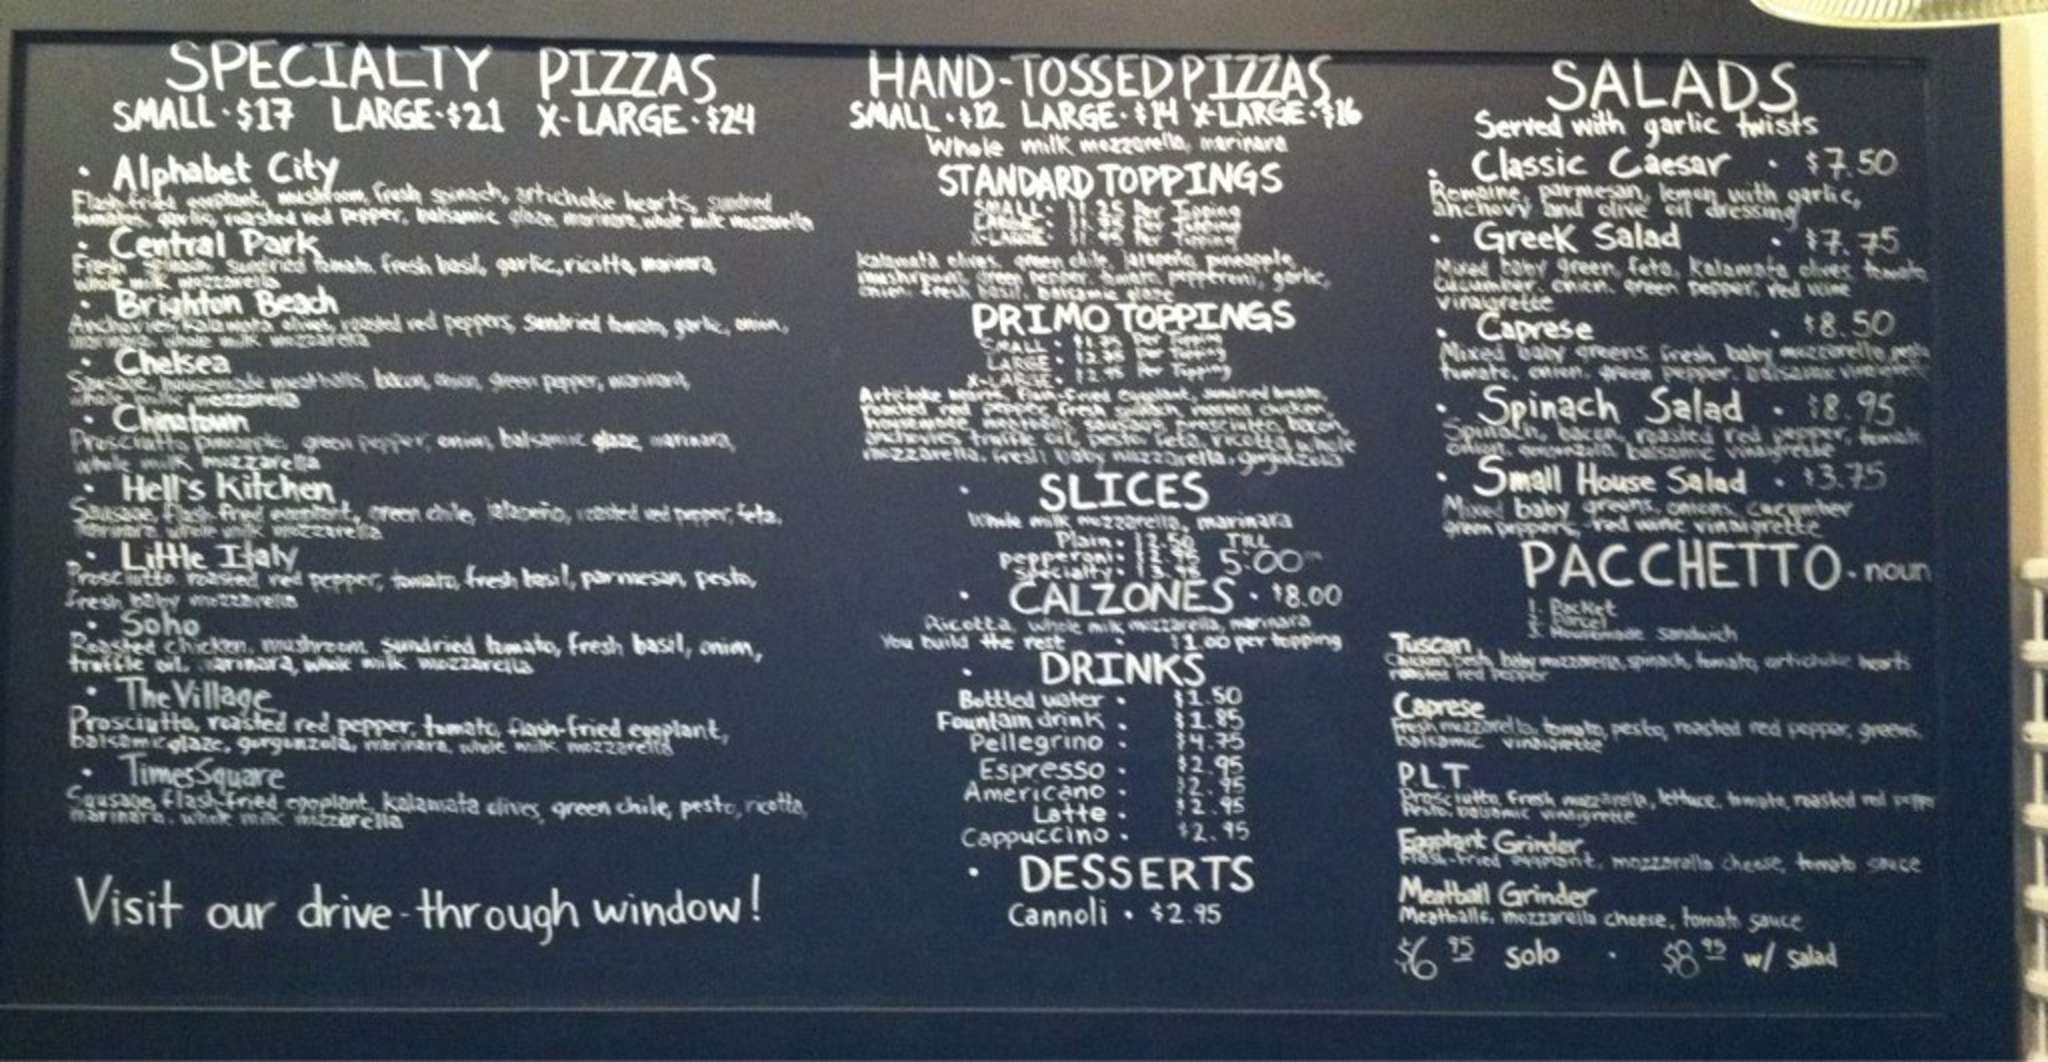 SPECIALTY PIZZAS
SMALL · $17 LARGE · $21 X-LARGE · $24
· Alphabet City
Flash-fried eggplant, mushroom, fresh spinach, artichoke hearts, sundried
tomatoes, garlic, roasted red pepper, balsamic glaze, marinara, whole milk mozzarella
· Central Park
Fresh spinach, sundried tomato, fresh basil, garlic, ricotta, marinara,
whole milk mozzarella
· Brighton Beach
Anchovies, kalamata olives, roasted red peppers, sundried tomato, garlic, onion,
marinara, whole milk mozzarella
· Chelsea
Sausage, housemade meatballs, bacon, onion, green pepper, marinara,
whole milk mozzarella
· Chinatown
Prosciutto, pineapple, green pepper, onion, balsamic glaze, marinara,
whole milk mozzarella
· Hell's Kitchen
Sausage, flash-fried eggplant, green chile, jalapeño, roasted red pepper, feta,
marinara, whole milk mozzarella
· Little Italy
Prosciutto, roasted red pepper, tomato, fresh basil, parmesan, pesto,
fresh baby mozzarella
· Soho
Roasted chicken, mushroom, sundried tomato, fresh basil, onion,
truffle oil, marinara, whole milk mozzarella
· The Village
Prosciutto, roasted red pepper, tomato, flash-fried eggplant,
balsamic glaze, gorgonzola, marinara, whole milk mozzarella
· Times Square
Sausage, flash-fried eggplant, kalamata olives, green chile, pesto, ricotta,
marinara, whole milk mozzarella
Visit our drive-through window!
HAND-TOSSED PIZZAS
SMALL · $12 LARGE · $14 X-LARGE · $16
Whole milk mozzarella, marinara
STANDARD TOPPINGS
SMALL · Per Topping
LARGE · Per Topping
X-LARGE · Per Topping
Kalamata olives, green chile, jalapeño, pineapple,
mushroom, green pepper, tomato, pepperoni, garlic,
onion, fresh basil, balsamic glaze
PRIMO TOPPINGS
SMALL · Per Topping
LARGE · Per Topping
X-LARGE · Per Topping
Artichoke hearts, flash-fried eggplant, sundried tomato,
roasted red pepper, fresh spinach, roasted chicken,
housemade meatballs, sausage, prosciutto, bacon,
anchovies, truffle oil, pesto, feta, ricotta, whole
mozzarella, fresh baby mozzarella, gorgonzola
· SLICES
Whole milk mozzarella, marinara
Plain · $2.50 TILL
pepperoni · 5:00
Specialty ·
· CALZONES · $8.00
Ricotta, whole milk mozzarella, marinara
You build the rest · $1.00 per topping
· DRINKS
Bottled water · $1.50
Fountain drink · $1.85
Pellegrino · $4.75
Espresso · $2.95
Americano · $2.95
Latte · $2.95
Cappuccino · $2.95
· DESSERTS
Cannoli · $2.95
SALADS
Served with garlic twists
· Classic Caesar · $7.50
Romaine, parmesan, lemon with garlic,
anchovy and olive oil dressing
· Greek Salad · $7.75
Mixed baby green, feta, kalamata olives, tomato,
cucumber, onion, green pepper, red wine
vinaigrette
· Caprese · $8.50
Mixed baby greens, fresh baby mozzarella, pesto
tomato, onion, green pepper, balsamic vinaigrette
· Spinach Salad · $8.95
Spinach, bacon, roasted red pepper, tomato
onion, gorgonzola, balsamic vinaigrette
· Small House Salad · $3.75
Mixed baby greens, onions, cucumber
green peppers, red wine vinaigrette
PACCHETTO · noun
1. Packet
2. Parcel
3. Housemade sandwich
Tuscan
Chicken, fresh baby mozzarella, spinach, tomato, artichoke hearts
roasted red pepper
Caprese
Fresh mozzarella, tomato, pesto, roasted red pepper, greens,
balsamic vinaigrette
P.L.T
Prosciutto, fresh mozzarella, lettuce, tomato, roasted red pepper
Pesto, balsamic vinaigrette
Eggplant Grinder
Flash-fried eggplant, mozzarella cheese, tomato sauce
Meatball Grinder
Meatballs, mozzarella cheese, tomato sauce
$6.95 solo · $8.95 w/ salad